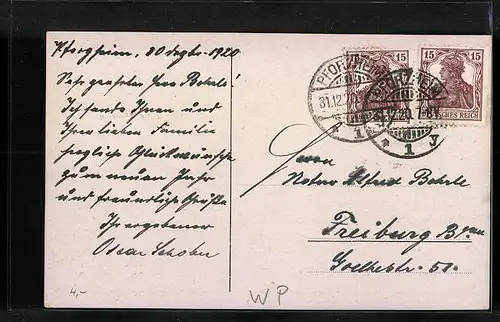 Pforzheim, 30 Dezbr. 1920
Sehr geehrter Herr Behrle!
Ich sende Ihnen und
Ihrer lieben Familie
herzliche Glückwünsche
zum neuen Jahr
und freundliche Grüße
Ihr ergebener
Oscar
4,-
PFORZHEIM
31.12.20
1
PFORZHEIM
31.12.20
1
15
15 15
DEUTSCHES REICH
Herrn
Notar Alfred Behrle
Freiburg
Goethestr. 51.
WP